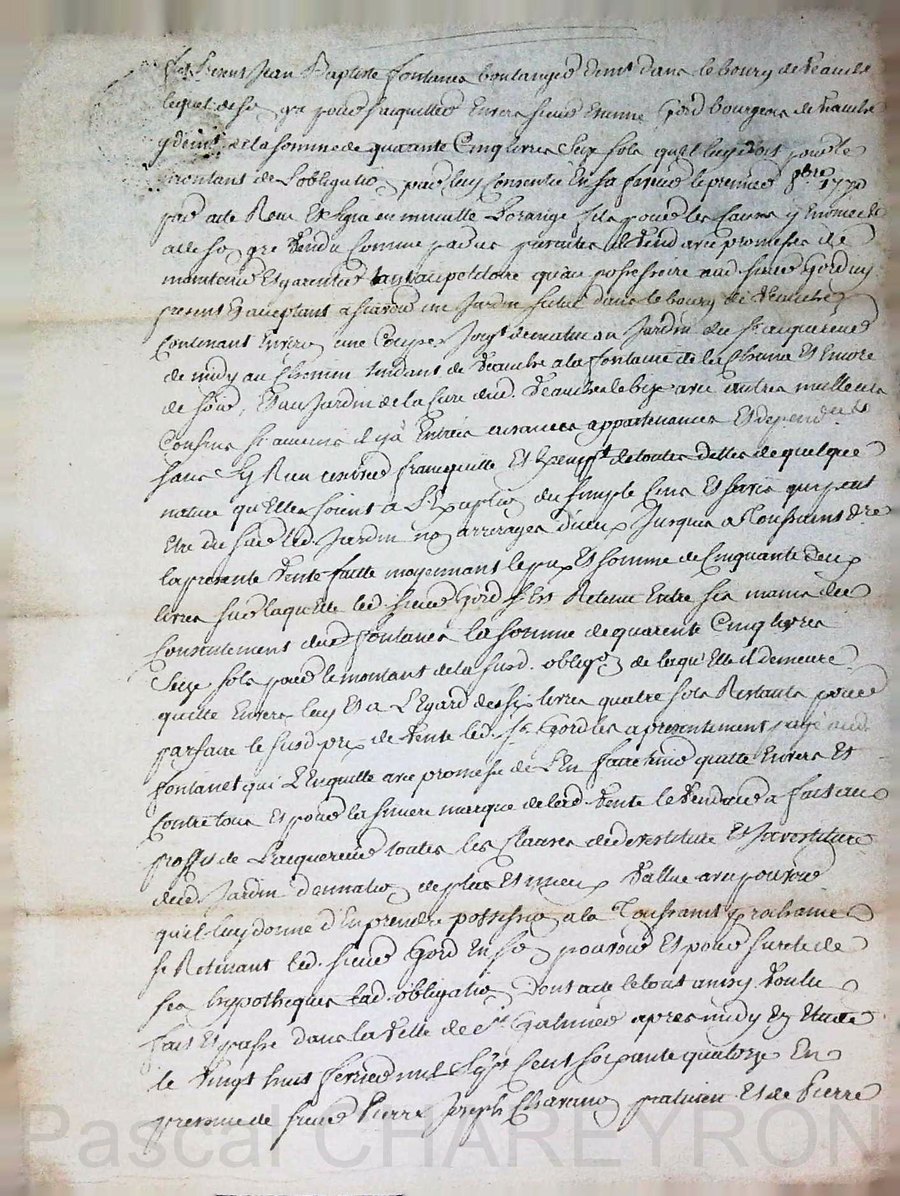 Fut present Jean Baptiste fontanes boulanger demt dans le bourg de Veauche
lequel de so gre pour sacquitter Envers sieur Etienne Gord bourgeois de Veauche
y demt de la somme de quarante Cinq livres Seize sols quil luy doit pour le
montant de Lobligatio par luy Consentie En sa faveur le premier 8bre
par acte Recu Et signé en minutte Lorange fils pour les causes y Enoncée
de so gre Vendu Comme par ces presentes il Vend avec promesses de
maintenir Et garentir tant au petitoire qu'au possessoire aud. sieur Gord icy
present Et acceptant a sçavoir un Jardin situé dans le bourg de Veauche
Contenant Enviro une Coupée Joigt de matin au Jardin du sr acquereur
de midy au Chemin tendant de Veauche a la fontaine de la Et Encore
de soir, Et au Jardin de la Cure dud. Veauche le bize avec autres meilleurs
Confins si aucuns il y a Entrées aisances appartenances Et dependces
sans y Rien reserver franc quitte Et Exempt de toutes dettes de quelque
nature qu'Elles soient a L'Exceptio du simple Cens Et servis qui peut
Etre du sur led. Jardin no arrerages d'iceux Jusques a Toussaints
la presente Vente faitte moyennant le prix Et somme de Cinquante deux
livres sur laquelle led. sieur Gord s'Est Retenu Entre ses mains du
Consentement dud. fontanes la somme de quarente Cinq livres
Seize sols pour le montant de la susd. obligo de laqu'Elle il demeure
quitte Envers luy Et a L'Egard des six livres quatre sols Restants pour
parfaire le susd. prix de Vente led. sr Gord les a presentement payé aud.
fontanet qui L'Enquitte avec promesse de L'En faire tenir quitte Envers Et
Contre tous Et pour la sincere marque de lad. Vente le Vendeur a fait au
proffit de L'acquereur toutes les Clauses de devestiture Et Investiture
dud. Jardin donnatio de plus Et mieux Vallue avec pouvoir
quil luy donne d'En prendre possessio a la Toussaints prochaine
se Retenant led. sieur Gord En so pouvoir Et pour sureté de
ses hypotheques lad. obligatio Dont acte le tout ainsy Voulu
fait Et passé dans la Ville de St Galmier apres midy En Etude
le Vingt huit fevrier mil sept Cent soixante quatorze En
presence de sieur Pierre Joseph Chavano praticien Et de Pierre
Pascal CHAREYRON